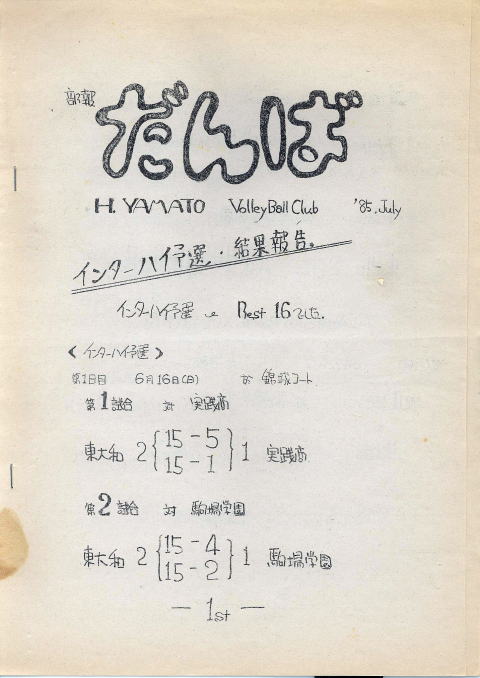 部報 だんば
H. YAMATO Volley Ball Club '85. July
インターハイ予選・結果報告。
インターハイ予選 Best 16でした.
《インターハイ予選》
第1日目 6月16日(日) コート
第1試合 対 実践高
東大和 2 {15-5 15-1} 1 実践高
第2試合 対 駒場学園
東大和 2 {15-4 15-2} 1 駒場学園
— 1st —